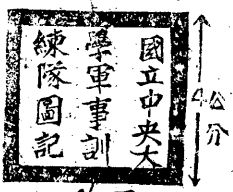 國立中央大
學軍事訓
練隊圖記
4公分